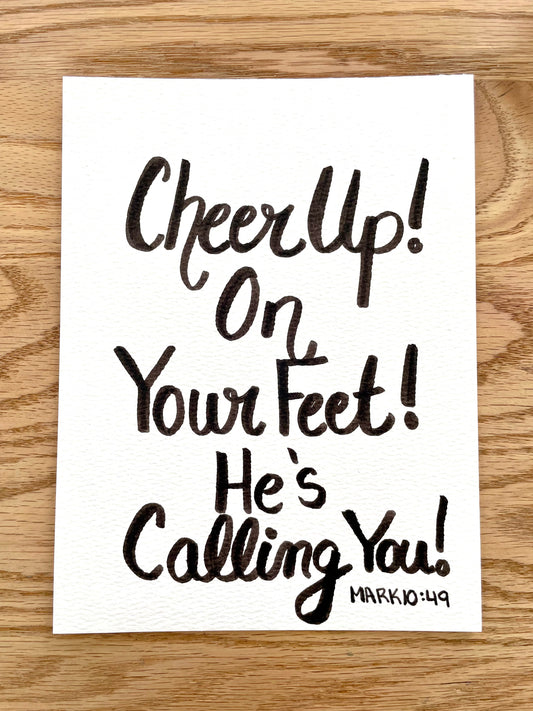 Cheer Up!
On
Your Feet!
He's
Calling You!
MARK 10:49